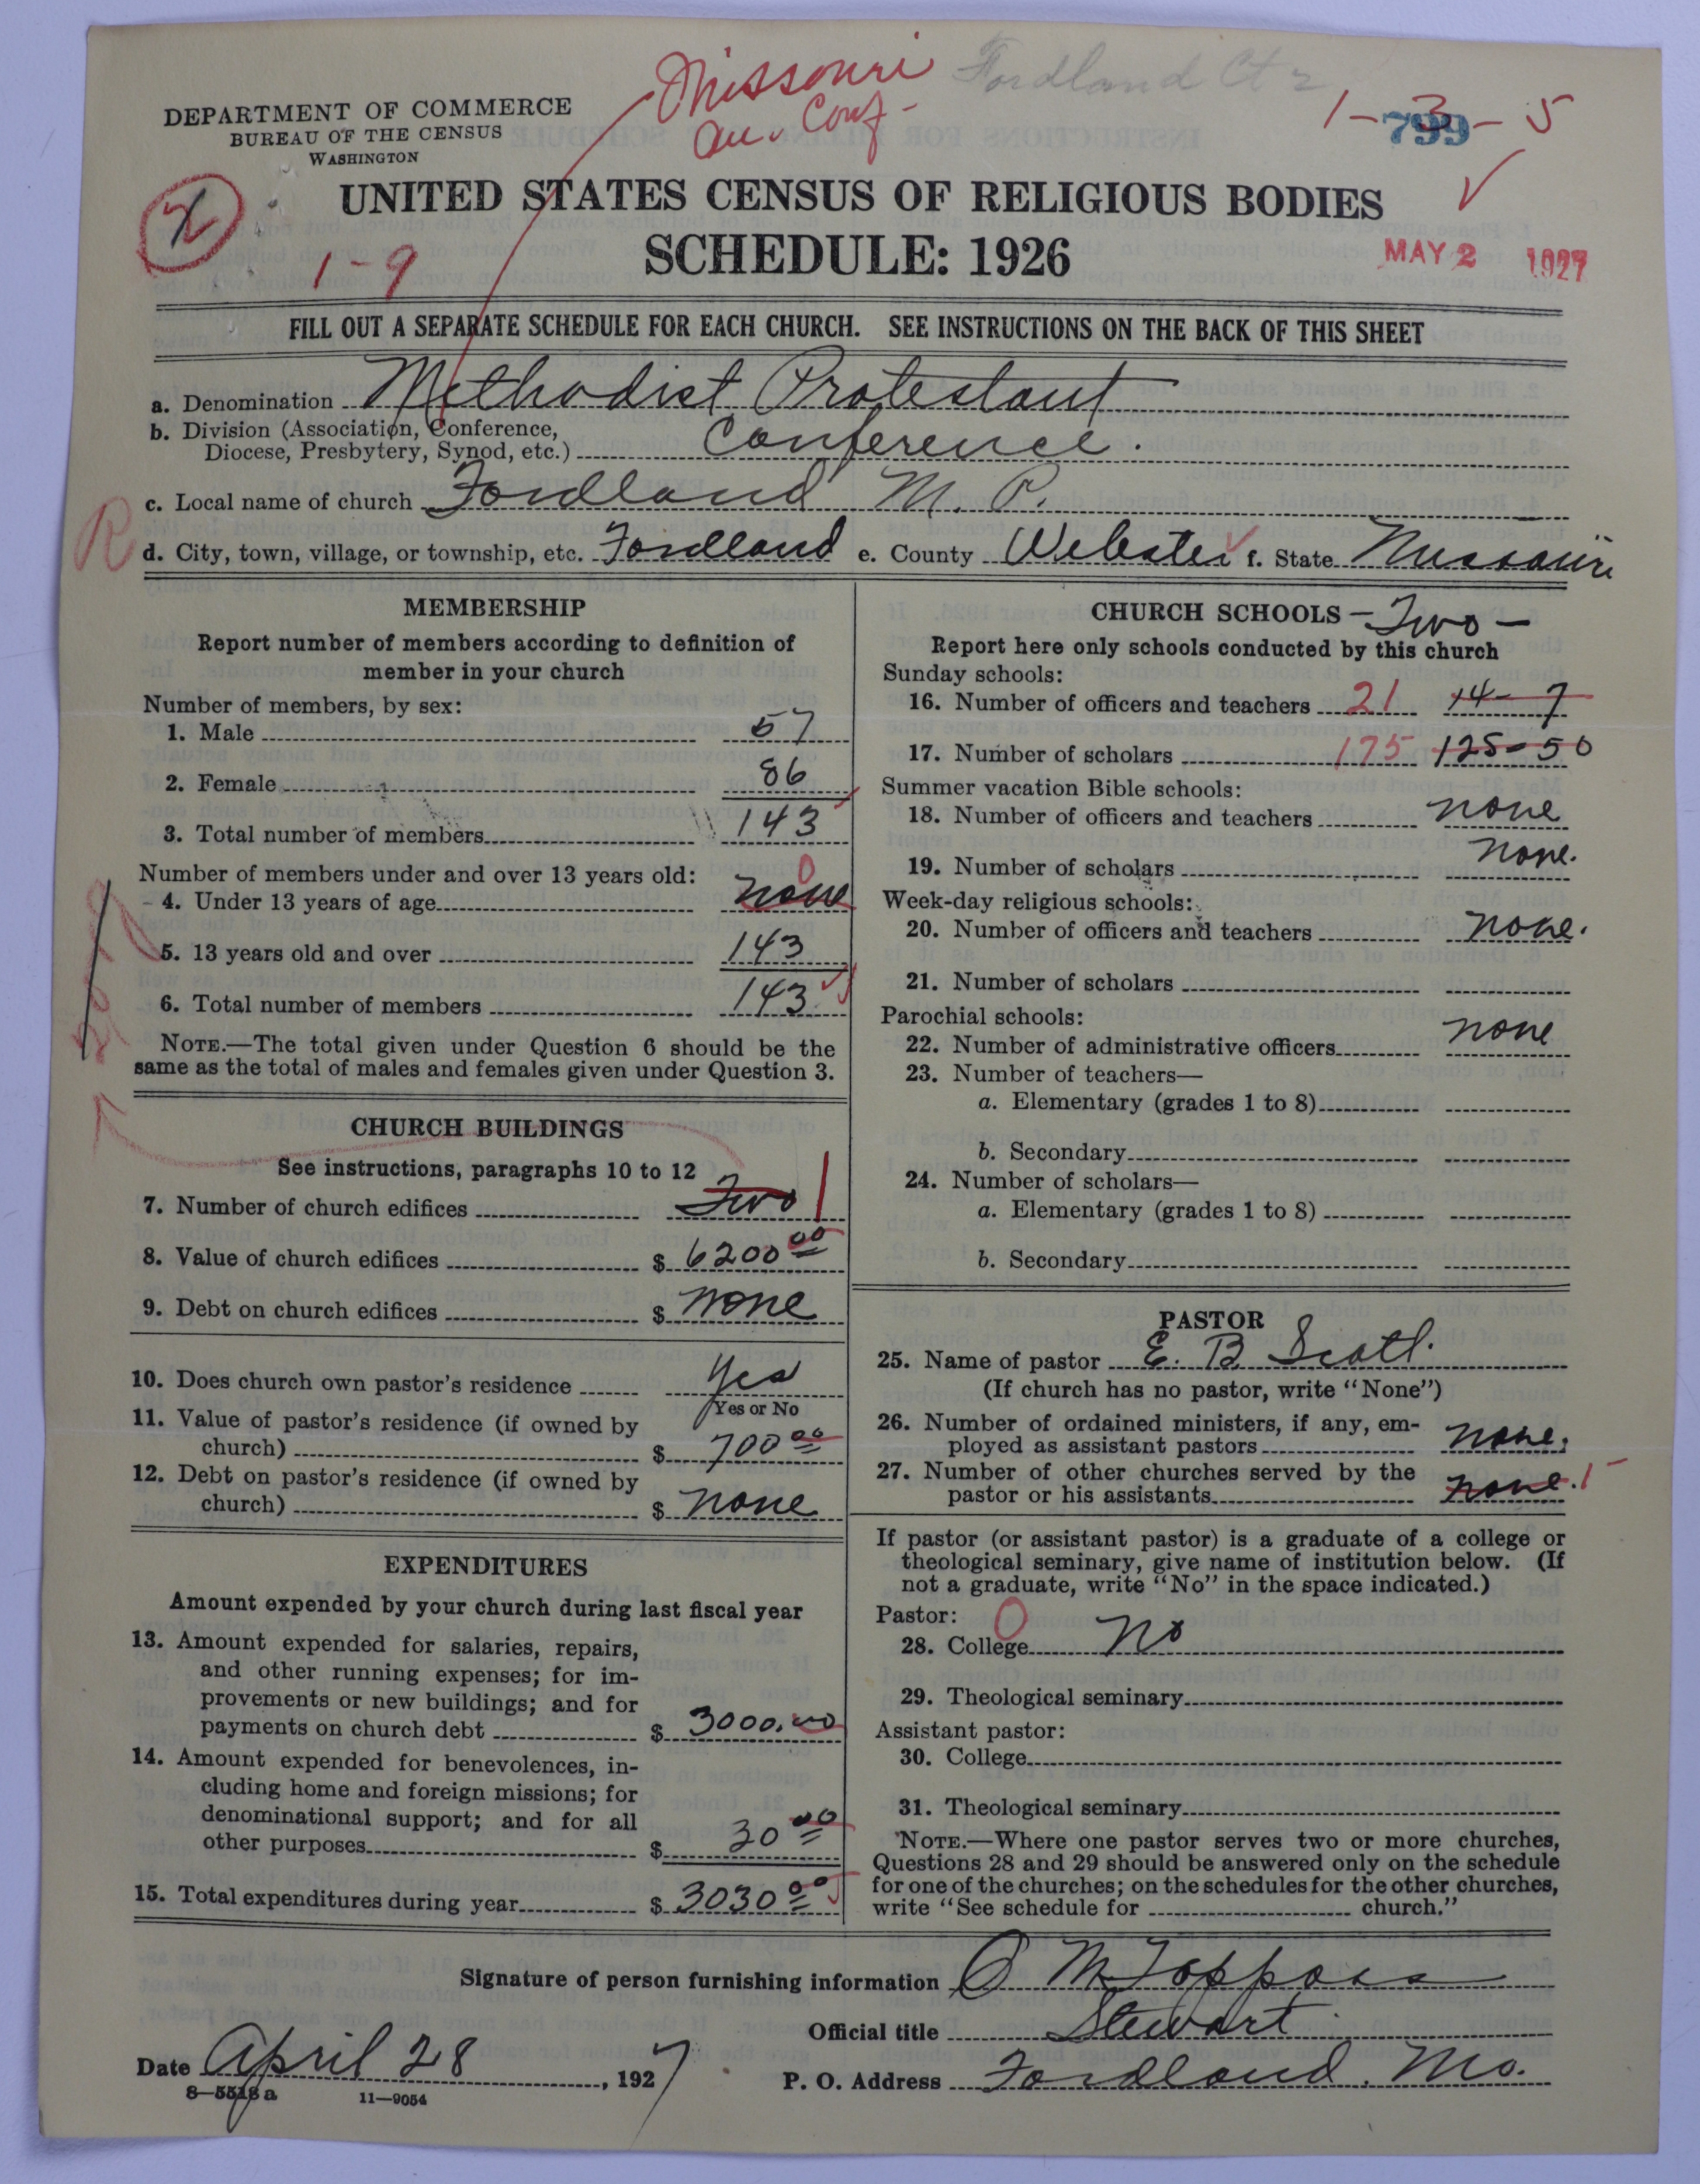 Missouri Fordland Ct 2
An. Conf -
1-3-5
799
DEPARTMENT OF COMMERCE
BUREAU OF THE CENSUS
WASHINGTON
UNITED STATES CENSUS OF RELIGIOUS BODIES
SCHEDULE: 1926
1-9
MAY 2 1927
FILL OUT A SEPARATE SCHEDULE FOR EACH CHURCH. SEE INSTRUCTIONS ON THE BACK OF THIS SHEET
a. Denomination Methodist Protestant
b. Division (Association, Conference,
Diocese, Presbytery, Synod, etc.) Conference.
c. Local name of church Fordland M. P.
R
d. City, town, village, or township, etc. Fordland e. County Webster f. State Missouri
MEMBERSHIP
Report number of members according to definition of
member in your church
Number of members, by sex:
1. Male 57
2. Female 86
3. Total number of members 143
Number of members under and over 13 years old:
4. Under 13 years of age none 0
5. 13 years old and over 143
6. Total number of members 143
NOTE.—The total given under Question 6 should be the
same as the total of males and females given under Question 3.
CHURCH BUILDINGS
See instructions, paragraphs 10 to 12
7. Number of church edifices Two 1
8. Value of church edifices $ 6200 00
9. Debt on church edifices $ none
10. Does church own pastor's residence Yes
Yes or No
11. Value of pastor's residence (if owned by
church) $ 700 00
12. Debt on pastor's residence (if owned by
church) $ none
EXPENDITURES
Amount expended by your church during last fiscal year
13. Amount expended for salaries, repairs,
and other running expenses; for im-
provements or new buildings; and for
payments on church debt $ 3000.00
14. Amount expended for benevolences, in-
cluding home and foreign missions; for
denominational support; and for all
other purposes $ 30 00
15. Total expenditures during year $ 3030 00
CHURCH SCHOOLS - Two -
Report here only schools conducted by this church
Sunday schools:
16. Number of officers and teachers 21 14-7
17. Number of scholars 175 125-50
Summer vacation Bible schools:
18. Number of officers and teachers none
19. Number of scholars none.
Week-day religious schools:
20. Number of officers and teachers none.
21. Number of scholars
Parochial schools:
22. Number of administrative officers none
23. Number of teachers—
a. Elementary (grades 1 to 8)
b. Secondary
24. Number of scholars—
a. Elementary (grades 1 to 8)
b. Secondary
PASTOR
25. Name of pastor E. B Scott.
(If church has no pastor, write "None")
26. Number of ordained ministers, if any, em-
ployed as assistant pastors none.
27. Number of other churches served by the
pastor or his assistants none.
If pastor (or assistant pastor) is a graduate of a college or
theological seminary, give name of institution below. (If
not a graduate, write "No" in the space indicated.)
Pastor: 0
28. College No
29. Theological seminary
Assistant pastor:
30. College
31. Theological seminary
NOTE.—Where one pastor serves two or more churches,
Questions 28 and 29 should be answered only on the schedule
for one of the churches; on the schedules for the other churches,
write "See schedule for church."
Signature of person furnishing information O M Toppass
Official title Stewart
Date April 28, 1927
P. O. Address Fordland. Mo.
8—5518a 11—9054